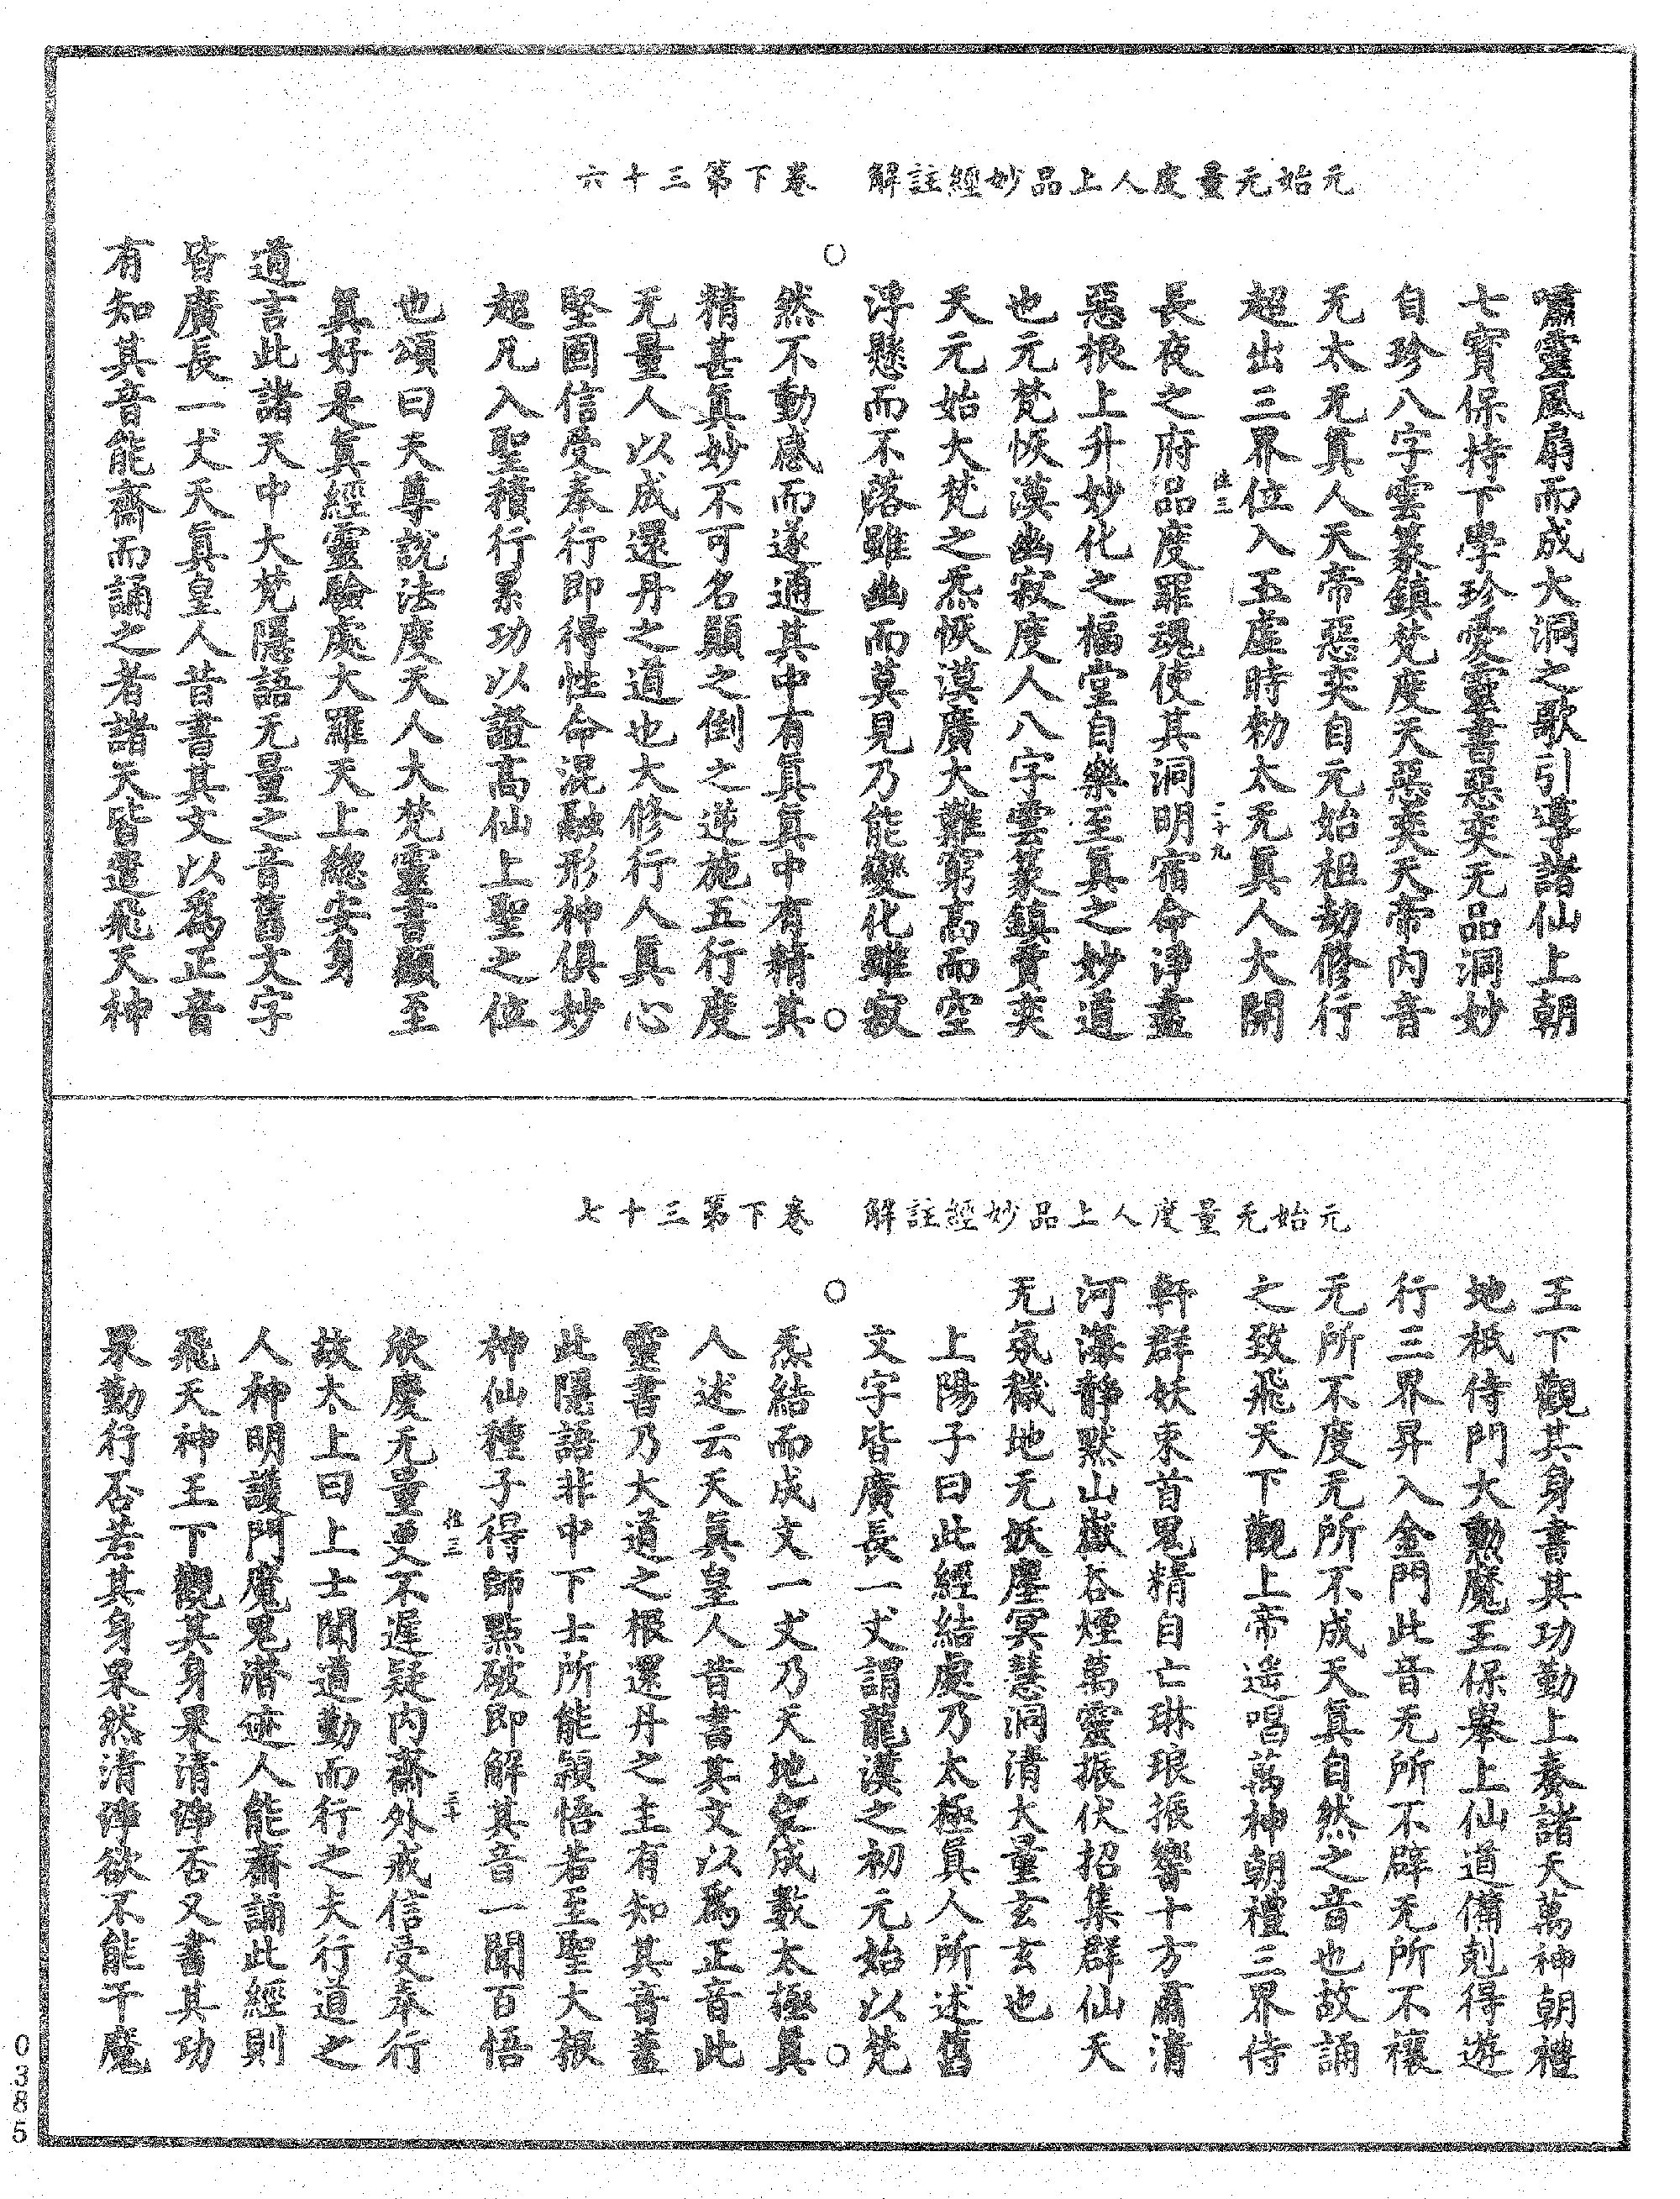 元始无量度人上品妙經註解　卷下第三十六
嘯靈風扇而成大洞之歌引導諸仙上朝
七寶保持下學珍愛靈書惡奕无品洞妙
自珍八字雲篆鎮梵度天惡奕天帝內音
无太无真人天帝惡奕自元始祖劫修行
超出三界位入玉虛時勑太无真人大開
長夜之府品度罪魂使其洞明宿命淨盡
惡根上升妙化之福堂自樂至真之妙道
也元梵恢漠幽寂度人八字雲篆鎮賁奕
天元始大梵之炁恢漠廣大難窮高而空
浮懸而不落雖幽而莫見乃能變化雖寂
然不動感而遂通其中有真真中有精其
精甚真妙不可名顯之倒之逆施五行度
无量人以成還丹之道也大修行人真心
堅固信受奉行即得性命混融形神俱妙
超凡入聖積行累功以證高仙上聖之位
也頌曰天尊說法度天人大梵靈書顯至
真好是真經靈驗處大羅天上總安身
道言此諸天中大梵隱語无量之音舊文字
皆廣長一丈天真皇人昔書其文以為正音
有知其音能齋而誦之者諸天皆遣飛天神
元始无量度人上品妙經註解　卷下第三十七
王下觀其身書其功勤上奏諸天萬神朝禮
地祇侍門大勳魔王保舉上仙道備剋得遊
行三界昇入金門此音无所不辟无所不禳
无所不度无所不成天真自然之音也故誦
之致飛天下觀上帝遙唱萬神朝禮三界侍
軒群妖束首鬼精自亡琳琅振響十方肅清
河海靜默山嶽吞煙萬靈振伏招集群仙天
无氛穢地无妖塵冥慧洞清大量玄玄也
上陽子曰此經結處乃太極真人所述舊
文字皆廣長一丈謂龍漢之初元始以梵
炁結而成文一丈乃天地空成數太極真
人述云天真皇人昔書其文以為正音此
靈書乃大道之根還丹之主有知其音蓋
此隱語非中下士所能穎悟若至聖大根
神仙種子得師點破即解其音一聞百悟
欣慶无量更不遲疑內齋外戒信受奉行
故太上曰上士聞道勤而行之夫行道之
人神明護門魔鬼潛迹人能齋誦此經則
飛天神王下觀其身果清淨否又書其功
果勤行否若其身果然清淨欲不能干魔
0385